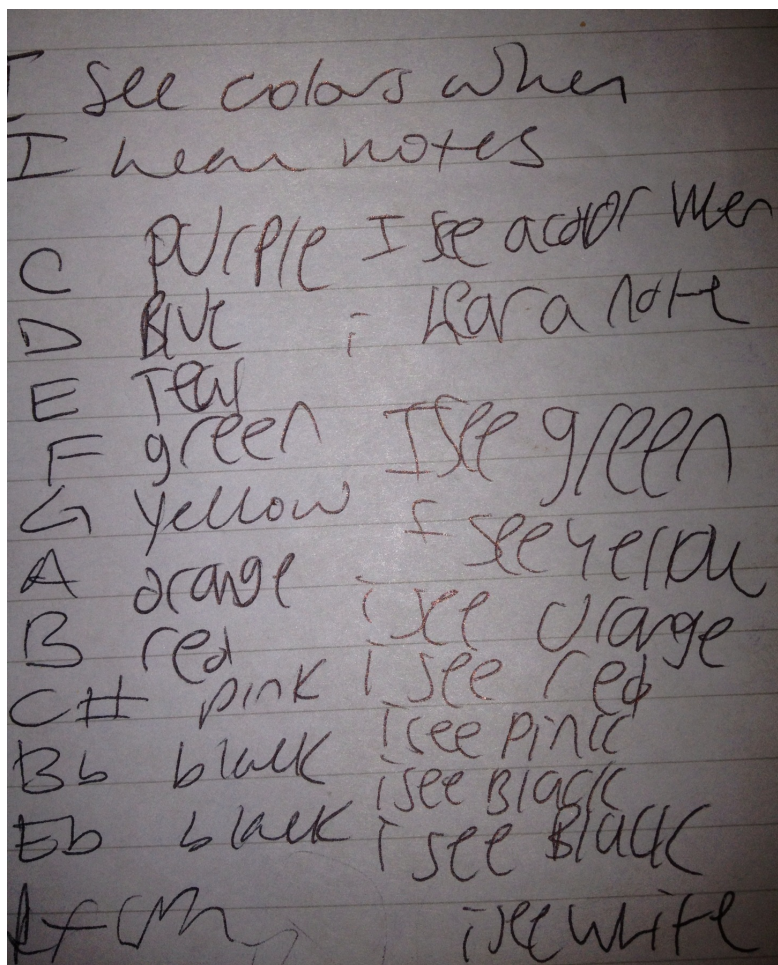 I see colors when
I hear notes
C purple I see a color when
D Blue i hear a note
E Teal
F green I see green
G yellow I see yellow
A orange i see orange
B red i see red
C# pink i see pink
Bb black i see Black
Eb black i see Black
i see white